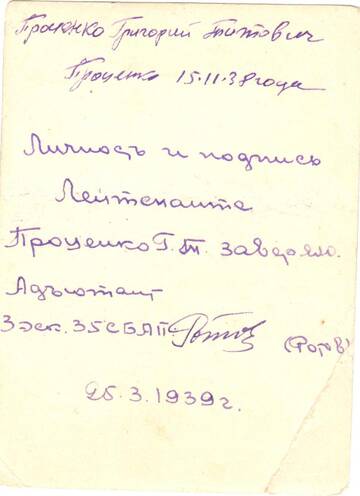 Проценко Григорий Титович
Проценко 15.11.38 года
Личность и подпись
Лейтенанта
Проценко Г.Т. заверяю.
Адъютант
3 эск. 35 СБАП
25.3.1939 г.